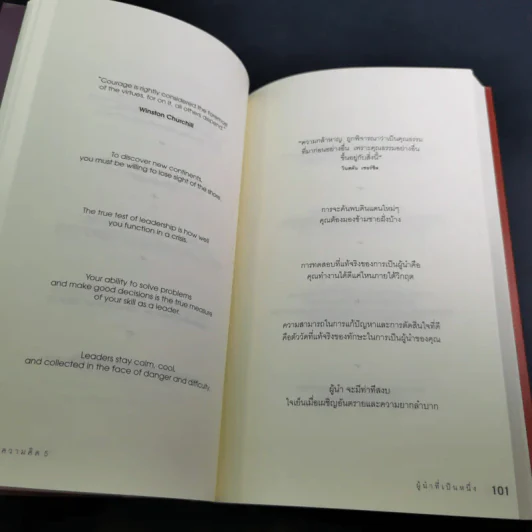 "Courage is rightly considered the foremost
of the virtues, for on it, all others depend."
Winston Churchill
To discover new continents,
you must be willing to lose sight of the shore.
The true test of leadership is how well
you function in a crisis.
Your ability to solve problems
and make good decisions is the true measure
of your skill as a leader.
Leaders stay calm, cool,
and collected in the face of danger and difficulty.
ความคิด 5
"ความกล้าหาญ ถูกพิจารณาว่าเป็นคุณธรรม
ที่มาก่อนอย่างอื่น เพราะคุณธรรมอย่างอื่น
ขึ้นอยู่กับสิ่งนี้"
วินสตัน เชอร์ชิล
การจะค้นพบดินแดนใหม่ๆ
คุณต้องมองข้ามชายฝั่งบ้าง
การทดสอบที่แท้จริงของการเป็นผู้นำคือ
คุณทำงานได้ดีแค่ไหนภายใต้วิกฤต
ความสามารถในการแก้ปัญหาและการตัดสินใจที่ดี
คือตัววัดที่แท้จริงของทักษะในการเป็นผู้นำของคุณ
ผู้นำ จะมีท่าทีสงบ
ใจเย็นเมื่อเผชิญอันตรายและความยากลำบาก
ผู้นำที่เป็นหนึ่ง 101